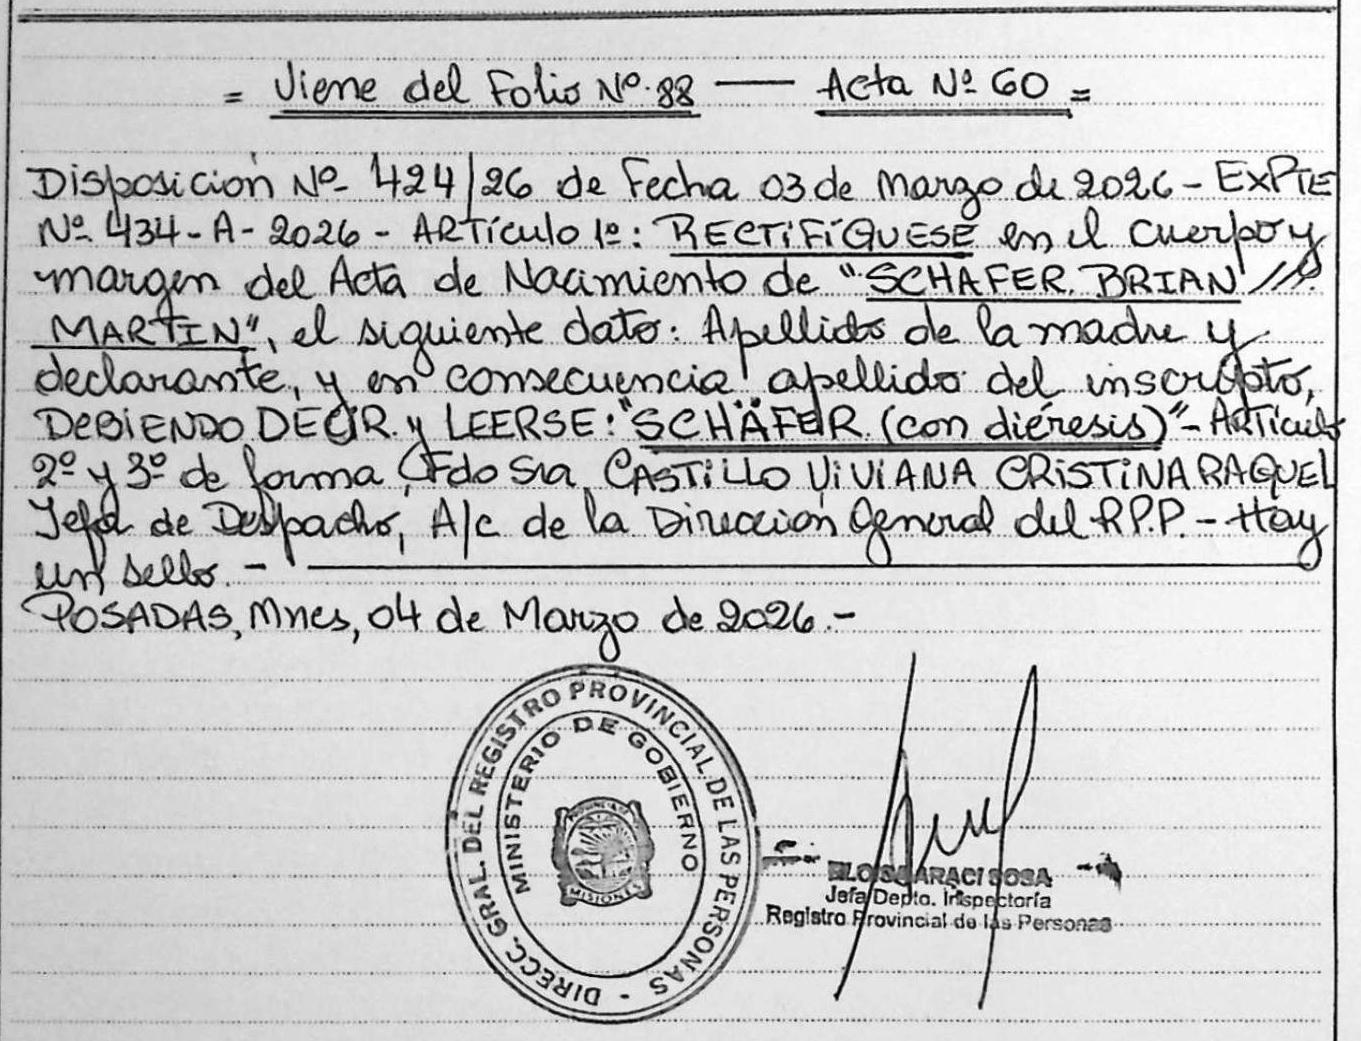 = Viene del Folio Nº 88 — Acta Nº 60 =
Disposición Nº 424/26 de Fecha 03 de Marzo de 2026 - EXPTE
Nº 434-A-2026 - ARTículo 1º: RECTIFÍQUESE en el cuerpo y
margen del Acta de Nacimiento de "SCHAFER BRIAN ///
MARTIN", el siguiente dato: Apellido de la madre y
declarante, y en consecuencia apellido del inscripto,
DEBIENDO DECIR y LEERSE: "SCHÄFER (con diéresis)" - ARTículo
2º y 3º de forma, Fdo Sra CASTILLO VIVIANA CRISTINA RAQUEL
Jefa de Despacho, A/c de la Dirección General del R.P.P. - Hay
un sello. -
POSADAS, Mnes, 04 de Marzo de 2026.-
DIRECC. GRAL. DEL REGISTRO PROVINCIAL DE LAS PERSONAS -
MINISTERIO DE GOBIERNO
PROVINCIA DE
MISIONES
ARACI SOSA
Jefa Depto. Inspectoría
Registro Provincial de las Personas